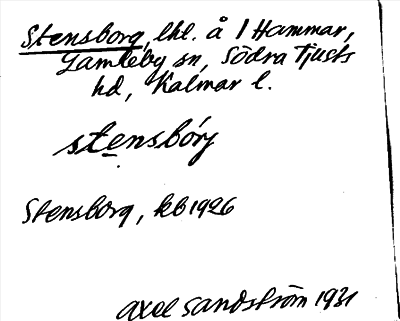 Stensborg, lhl. å 1 Hammar,
Gamleby sn, Södra Tjusts
hd, Kalmar l.
stensbórj
Stensborg, kb 1926
Axel Sandström 1931